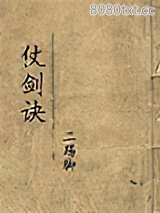 8080txt.cc
仗剑诀
二踢脚